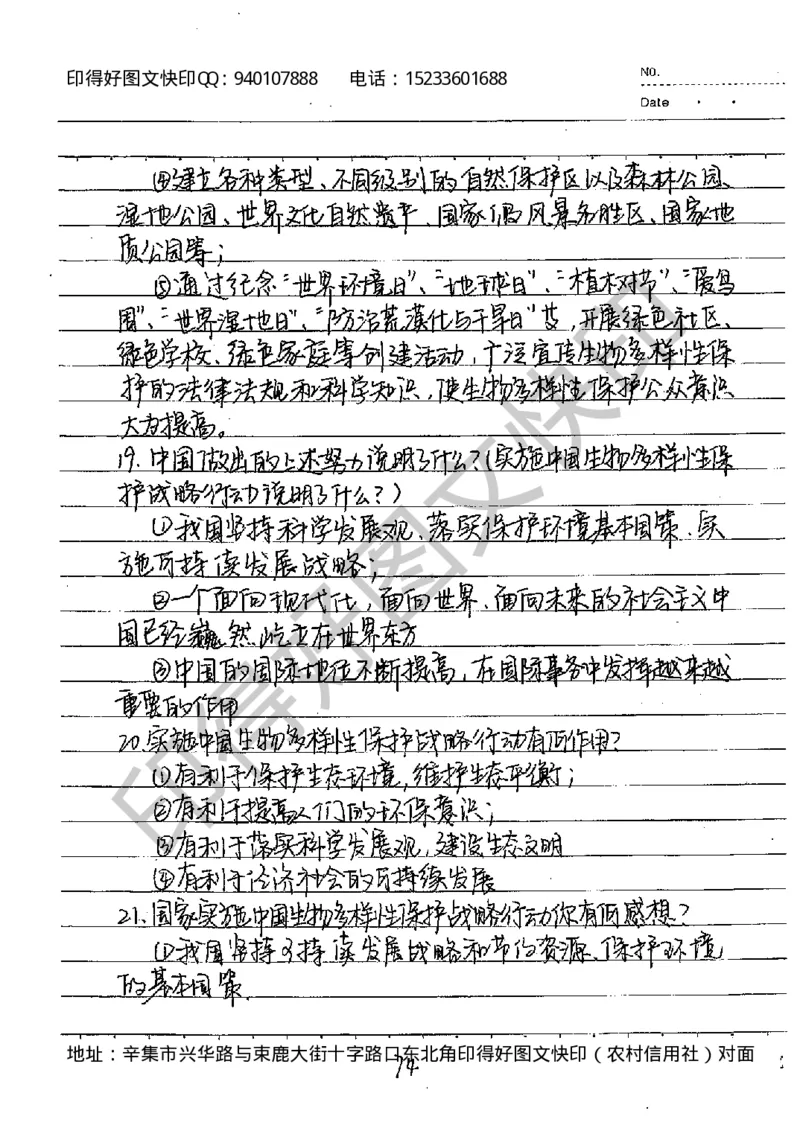 印得好图文快印QQ：940107888 电话：15233601688
No.
Date
④建立各种类型、不同级别的自然保护区以及森林公园、
湿地公园、世界文化自然遗产、国家级风景名胜区、国家地
质公园等；
⑤通过纪念“世界环境日”、“地球日”、“植树节”、“爱鸟
周”、“世界湿地日”、“防治荒漠化与干旱日”等，开展绿色社区、
绿色学校、绿色家庭等创建活动，广泛宣传生物多样性保
护的法律法规和科学知识，使生物多样性保护公众意识
大为提高。
19.中国做出的上述努力说明了什么？（实施中国生物多样性保
护战略行动说明了什么？）
①我国坚持科学发展观、落实保护环境基本国策、实
施可持续发展战略；
②一个面向现代化，面向世界、面向未来的社会主义中
国已经巍然屹立在世界东方
③中国的国际地位不断提高，在国际事务中发挥越来越
重要的作用
20.实施中国生物多样性保护战略行动有何作用？
①有利于保护生态环境，维护生态平衡；
②有利于提高人们的环保意识；
③有利于落实科学发展观，建设生态文明
④有利于经济社会的可持续发展
21.国家实施中国生物多样性保护战略行动你有何感想？
①我国坚持可持续发展战略和节约资源、保护环境
的基本国策
地址：辛集市兴华路与束鹿大街十字路口东北角印得好图文快印（农村信用社）对面
74
印得好图文快印